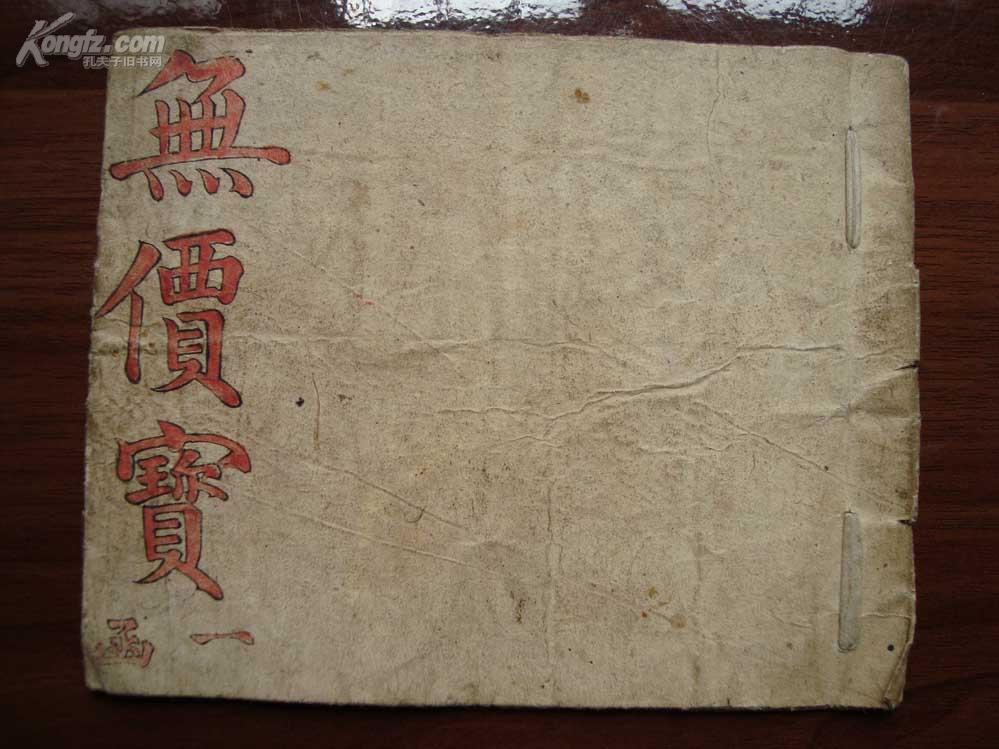 Kongfz.com
孔夫子旧书网
無價寶
一函